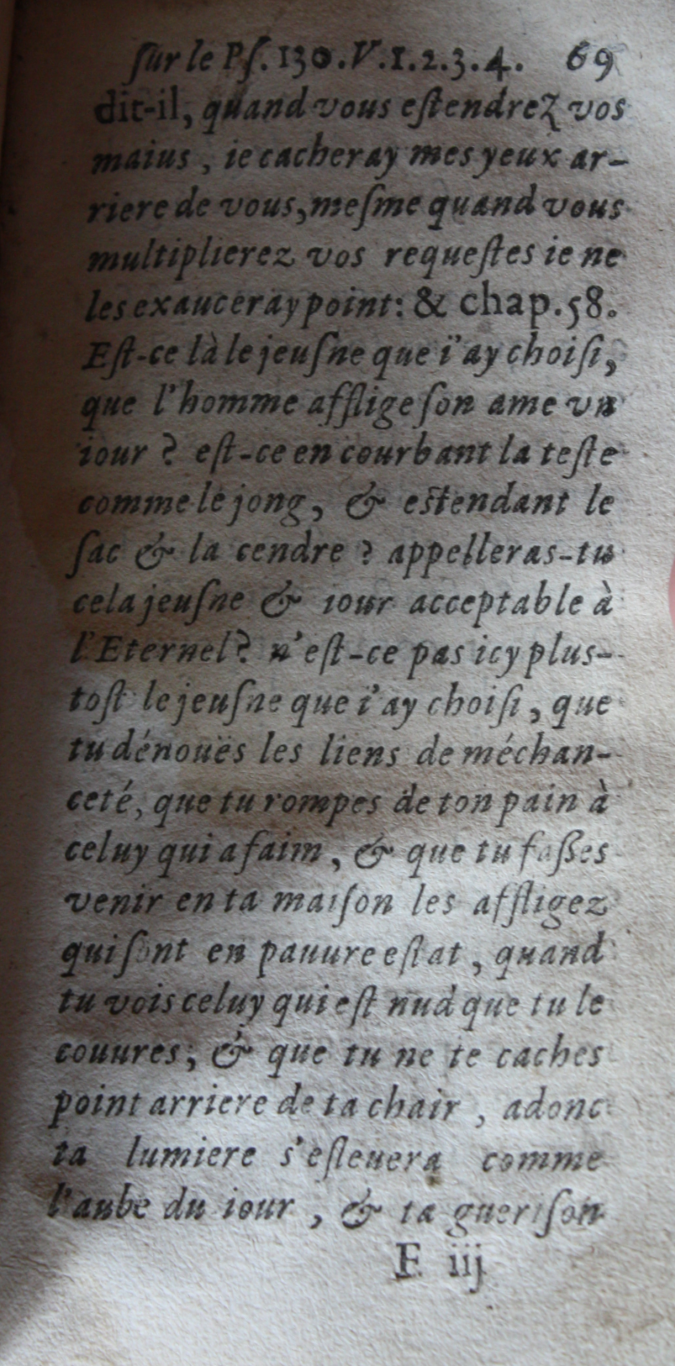 ſur le Pſ. 130. V. 1. 2. 3. 4. 69
dit-il, quand vous eſtendrez vos
maius, ie cacheray mes yeux ar-
riere de vous, meſme quand vous
multiplierez vos requeſtes ie ne
les exauceray point: & chap. 58.
Eſt-ce là le jeuſne que i'ay choiſi,
que l'homme afflige ſon ame vn
iour ? eſt-ce en courbant la teſte
comme le jong, & eſtendant le
ſac & la cendre ? appelleras-tu
cela jeuſne & iour acceptable à
l'Eternel? n'eſt-ce pas icy plus-
toſt le jeuſne que i'ay choiſi, que
tu dénouës les liens de méchan-
ceté, que tu rompes de ton pain à
celuy qui a faim, & que tu faßes
venir en ta maiſon les affligez
qui ſont en pauure eſtat, quand
tu vois celuy qui eſt nud que tu le
couures; & que tu ne te caches
point arriere de ta chair, adonc
ta lumiere s'eſleuera comme
l'aube du iour, & ta gueriſon
E iij